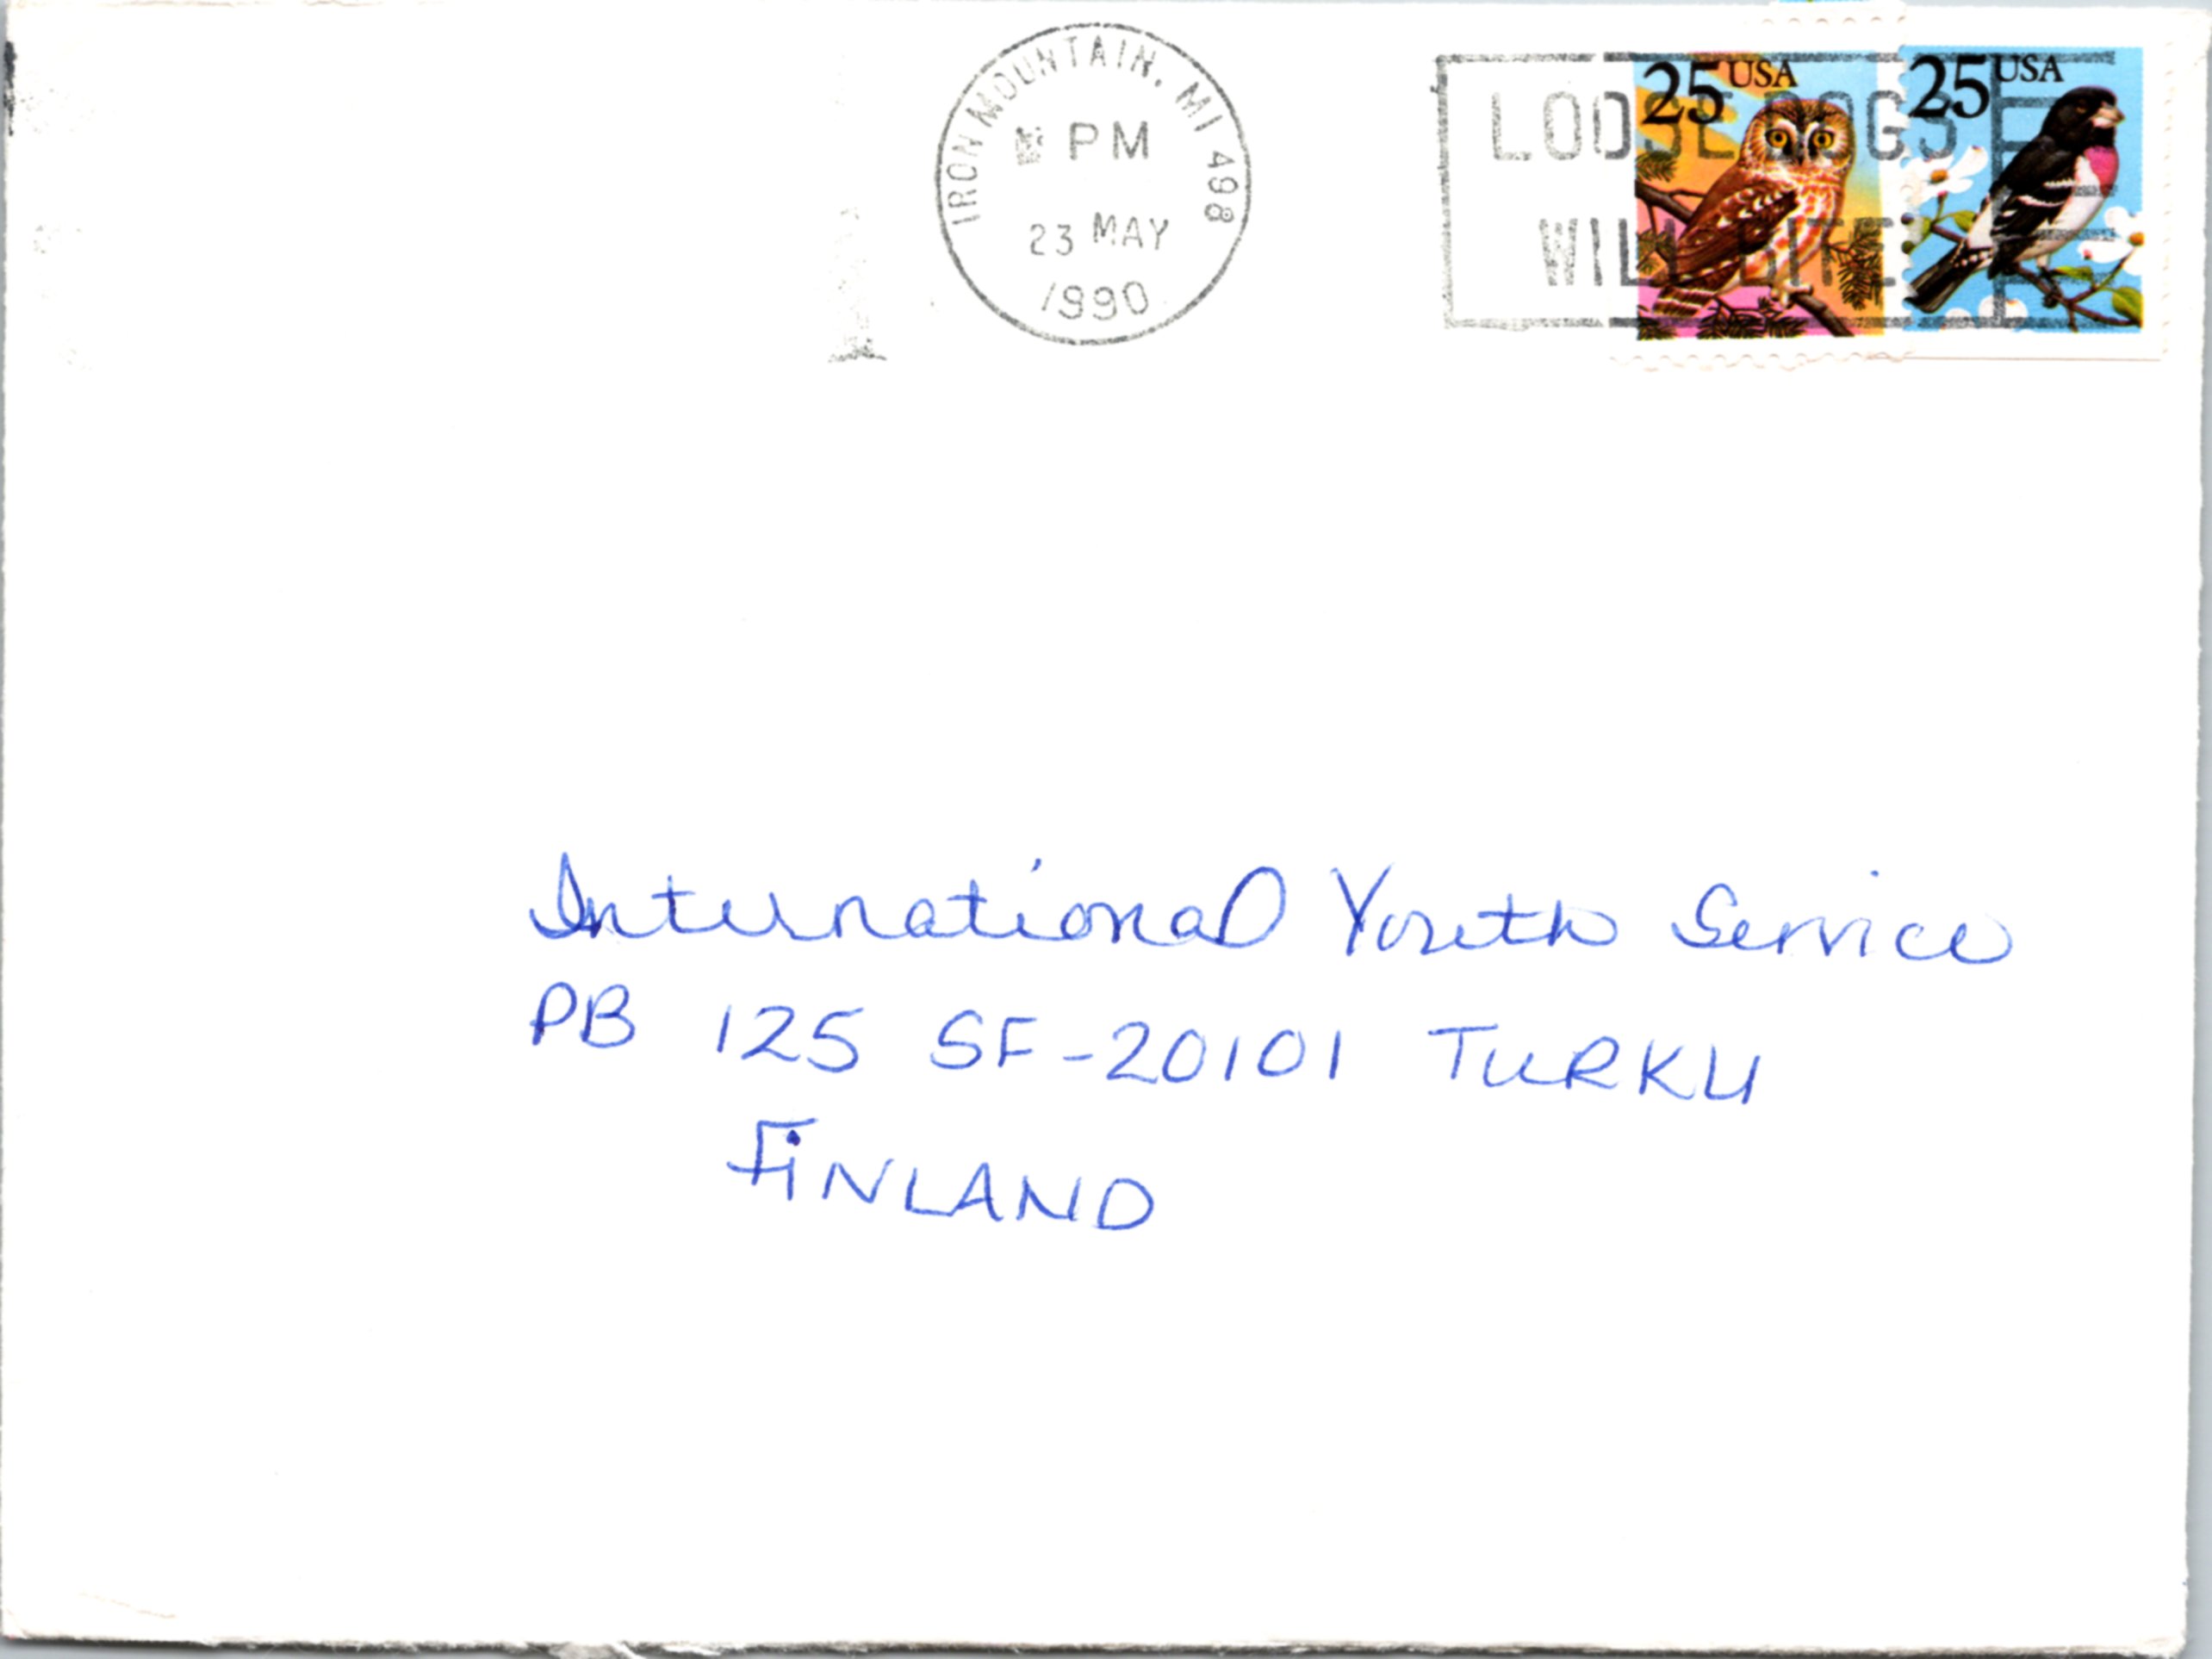 IRON MOUNTAIN, MI 498
PM
23 MAY
1990
LOOSE DOGS
WILL BITE
25 USA
25 USA
International Youth Service
PB 125 SF-20101 TURKU
FINLAND